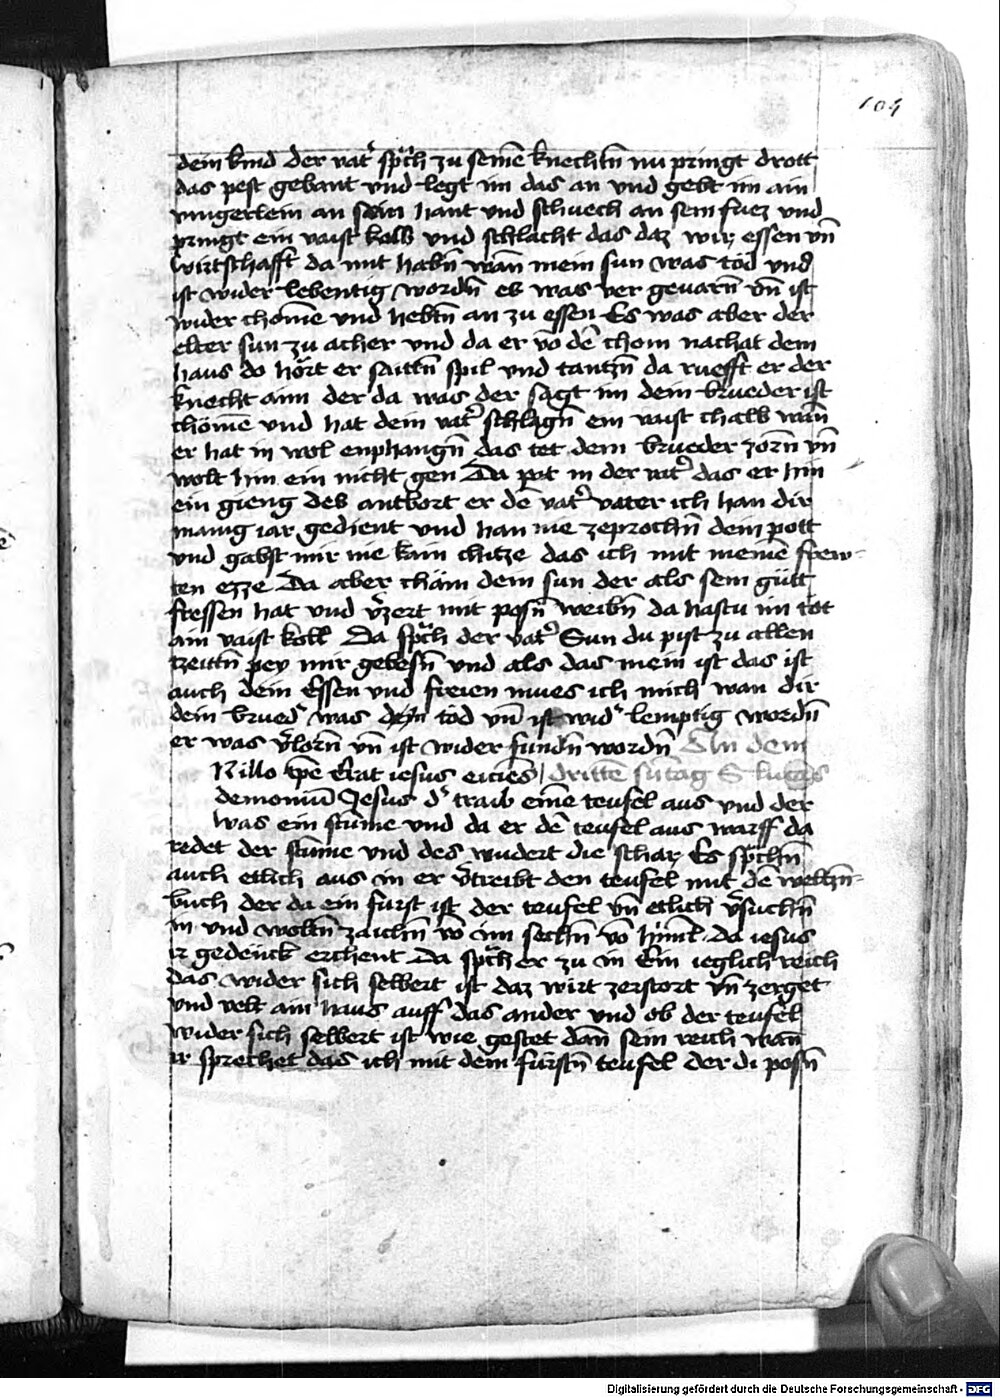 104
dein kind der vat᷑ sprͣch zu seinē knechtn̄ nu pringt drott
das pest gebant vnd legt im das an vnd gebt im ain
vingerlein an sein hant vnd schuech an sein fuez vnd
pringt ein vaist kalb vnd schlacht das daz wir essen vn̄
wirtschafft da mit habn̄ wan̄ mein sun was töd vnd
ist wider lebentig wordn̄ eb was ver geuarn̄ vn̄ ist
wider chömē vnd hebtn̄ an zu essen Es was aber der
elter sun zu acher vnd da er vō dē chom nachat dem
haus do hört er saittn̄ spil vnd tantzn̄ da ruefft er der
knecht aim der da was der sagt im dein brueder ist
chömē vnd hat dein vat᷑ schlagn̄ ein vaist chalb wan̄
er hat in wol enphangn̄ das tet dem brueder zorn̄ vn̄
wolt hin ein nicht gen Da pat in der vat᷑ das er hin
ein gieng Deb antbort er dē vat᷑ vater ich han dir
manig iar gedient vnd han nie zeprochn̄ dein pott
vnd gabst mir nie kain chitze das ich mit meinē frew-
ten ezze Da aber chäm dein sun der als sein gütt
fressen hat vnd v᷑zert mit posn̄ weibn̄ da hastu im töt
ain vaist kalb Da sprͣch der vat᷑ Sun du pist zu allen
tzeittn̄ pey mir gebesn̄ vnd als das mein ist das ist
auch dein Essen vnd freien mues ich mich wan dir
dein brued᷑ was töd vn̄ ist wid᷑ lemptig wordn̄
er was v᷑lorn̄ vn̄ ist wider fundn̄ wordn̄ An dem
N illo tp̄e Erat iesus eiciēs dritte sūtag S lucas
demoniū Jesus d᷑ traib einē teufel aus vnd der
was ein stūme vnd da er dē teufel aus warff da
redet der stūme vnd des wudert die schar Es sprͣchn̄
auch etlich aus in er v᷑treibt den teufel mit dē weltzn̄-
buch der da ein fürst ist der teufel vn̄ etlich v᷑suchtn̄
in vnd woltn̄ zaichn̄ vō im sechn̄ vō himl Da iesus
ir gedenck erchent Da sprͣch er zu in Ein ieglich reich
das wider sich selbert ist daz wirt zerstort vn̄ zerget
vnd velt ain haus auff das ander vnd ob der teufel
wider sich selbert ist wie gestet dan̄ sein reich wan̄
ir sprechet das ich mit dem fürstn̄ teufel der di posn̄
Digitalisierung gefördert durch die Deutsche Forschungsgemeinschaft - DFG